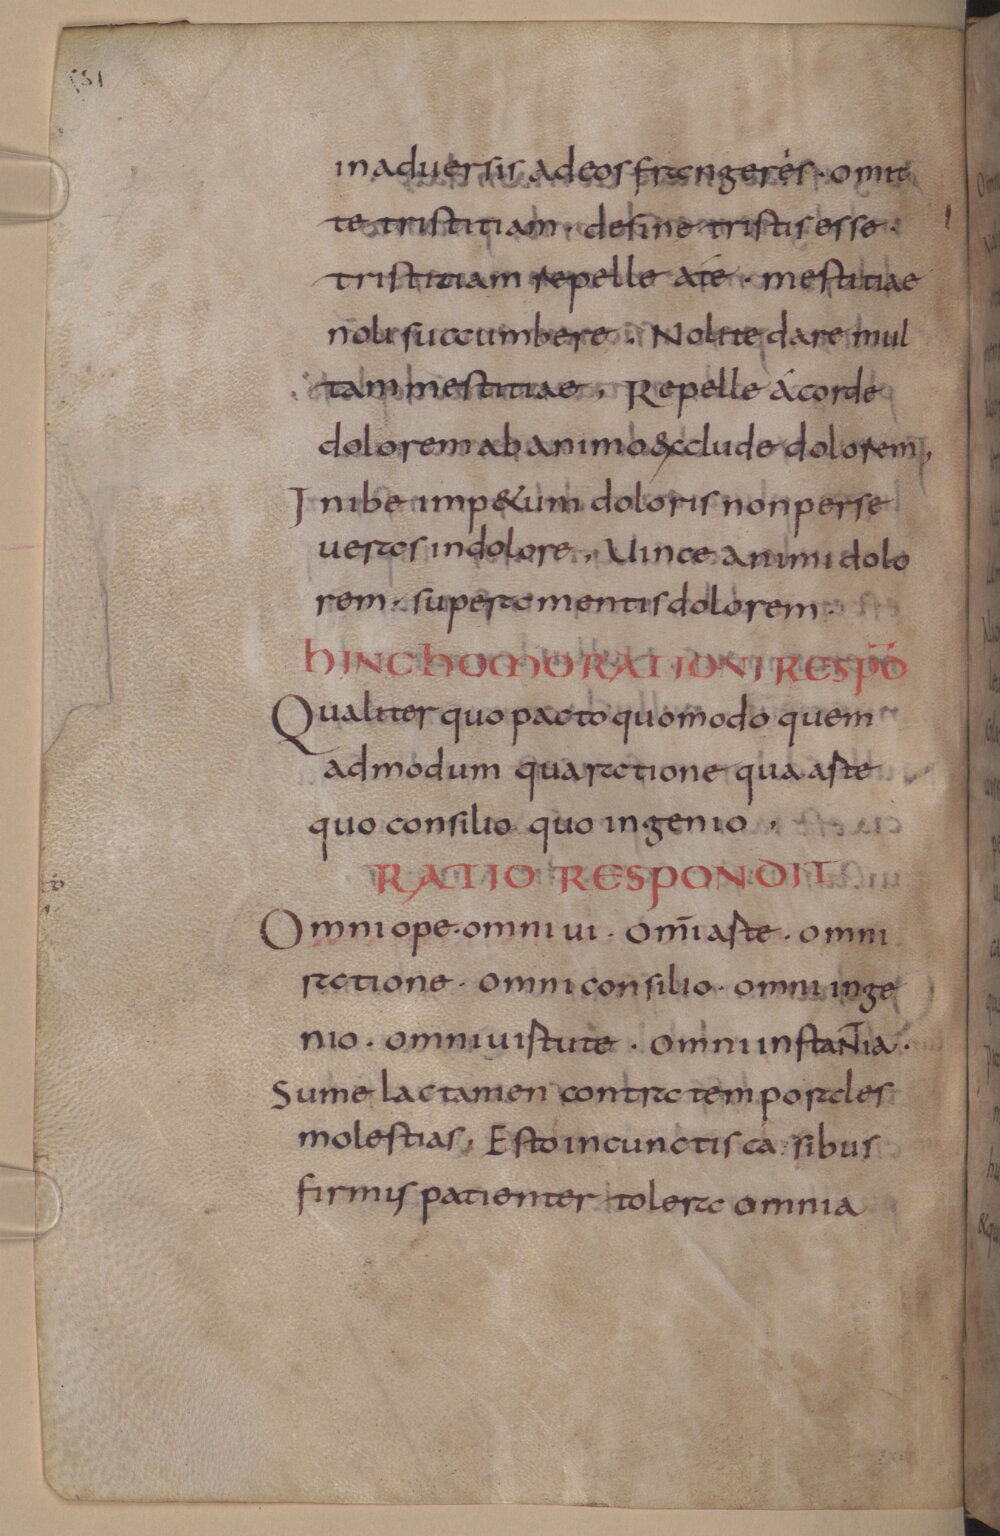 in adversis ad eos frangeres · omit
te tristitiam · desine tristis esse ·
tristitiam repelle a te · mestitiae
noli succumbere · Nolite dare mul
tam mestitiae, Repelle á corde
dolorem ab animo &cclude dolorem,
Inibe imp&um doloris non perse
ueras in dolore, Uince animi dolo
rem · supera mentis dolorem ·
HINC HOMO RATIONI RESPŌD̄
Qualiter quo pacto quomodo quem
admodum qua ratione qua aste
quo consilio quo ingenio,
RATIO RESPONDIT
Omni ope · omni ui · om̄i aste · omni
ratione · omni consilio · omni inge
nio · omni uirtute · omni instantia ·
Sume lac tamen contra temporales
molestias, Esto in cunctis casibus
firmis patienter tolera omnia